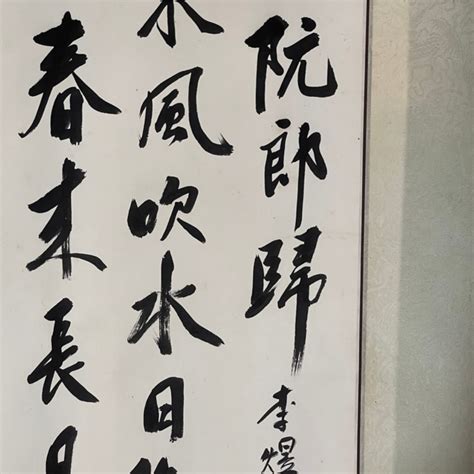 阮郎歸 李煜
風吹水日
春来長